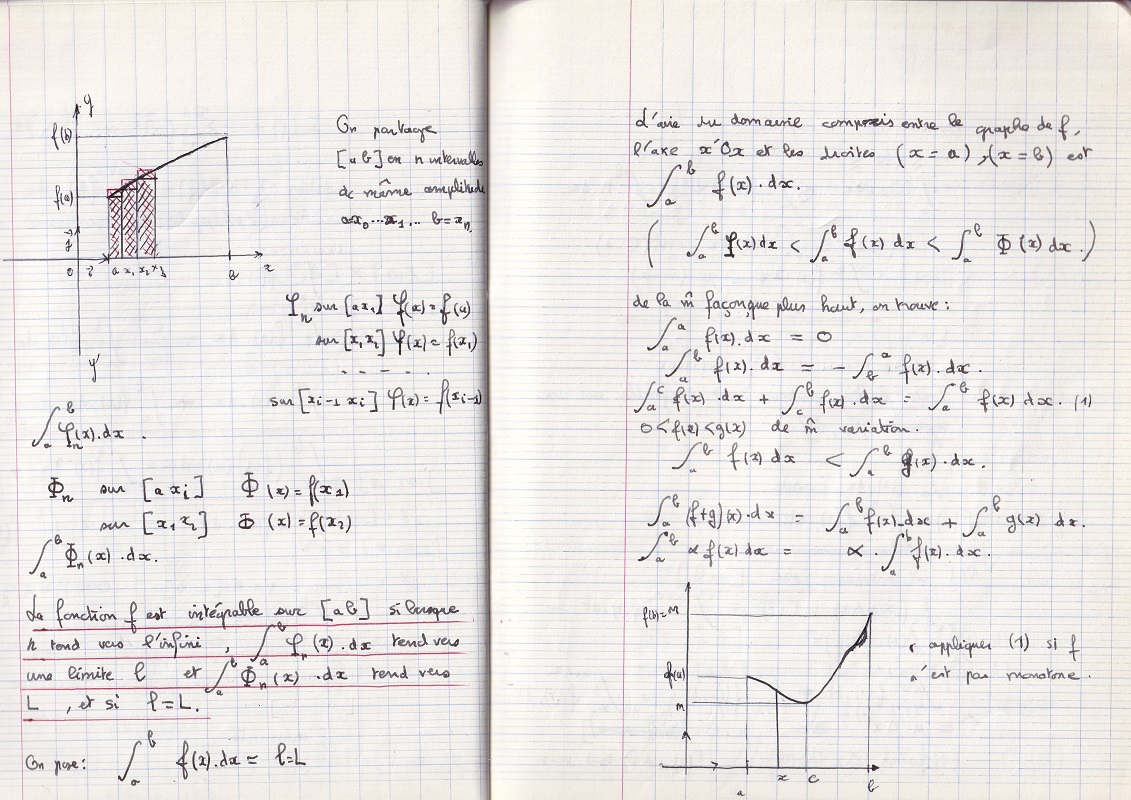 y
f(b)
f(a)
j
o i a x₁ x₂ x₃ b x
y'
On partage
[a b] en n intervalles
de même amplitude
a = x₀ ... x₁ ... b = xₙ
φₙ sur [a x₁] φ(x) = f(a)
sur [x₁ x₂] φ(x) = f(x₁)
. . . . .
sur [xᵢ₋₁ xᵢ] φ(x) = f(xᵢ₋₁)
∫ₐᵇ φₙ(x).dx .
Φₙ sur [a xᵢ] Φ(x) = f(x₁)
sur [x₁ x₂] Φ(x) = f(x₂)
∫ₐᵇ Φₙ(x).dx.
La fonction f est intégrable sur [a b] si lorsque
n tend vers l'infini, ∫ₐᵇ φₙ(x).dx tend vers
une limite l et ∫ₐᵇ Φₙ(x).dx tend vers
L, et si l = L.
On pose : ∫ₐᵇ f(x).dx = l = L
L'aire du domaine compris entre le graphe de f,
l'axe x'Ox et les droites (x = a), (x = b) est
∫ₐᵇ f(x).dx.
( ∫ₐᵇ φ(x) dx < ∫ₐᵇ f(x) dx < ∫ₐᵇ Φ(x) dx. )
de la m̂ façon que plus haut, on trouve :
∫ₐᵃ f(x).dx = 0
∫ₐᵇ f(x).dx = - ∫_b^a f(x).dx.
∫ₐᶜ f(x).dx + ∫_c^b f(x).dx = ∫ₐᵇ f(x) dx. (1)
0 < f(x) < g(x) de m̂ variation.
∫ₐᵇ f(x) dx < ∫ₐᵇ g(x).dx.
∫ₐᵇ (f+g)(x).dx = ∫ₐᵇ f(x).dx + ∫ₐᵇ g(x) dx.
∫ₐᵇ α f(x) dx = α . ∫ₐᵇ f(x).dx.
f(b) = M
f(a)
m
a x c b
appliquer (1) si f
n'est pas monotone.